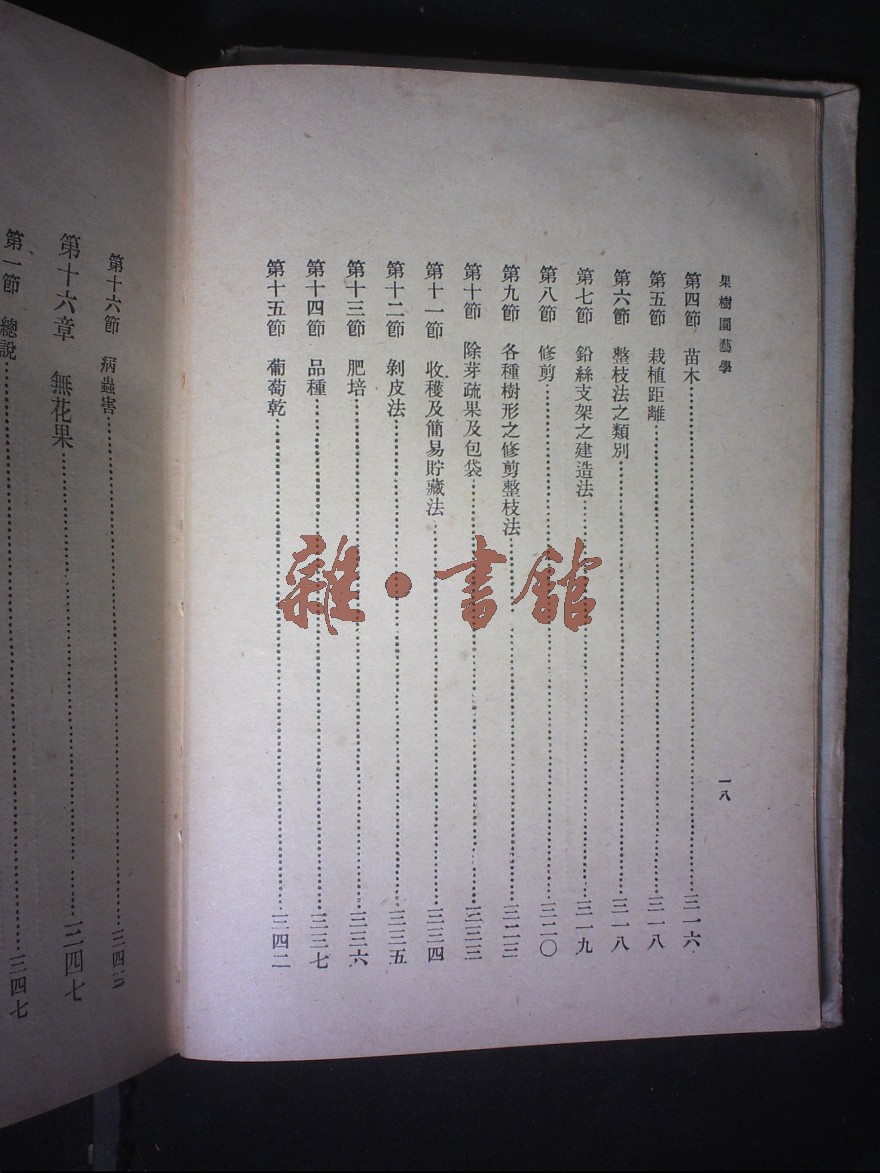 果樹園藝學
一八
第四節 苗木……三一六
第五節 栽植距離……三一八
第六節 整枝法之類別……三一八
第七節 鉛絲支架之建造法……三一九
第八節 修剪……三二〇
第九節 各種樹形之修剪整枝法……三二三
第十節 除芽疏果及包袋……三三三
第十一節 收穫及簡易貯藏法……三三四
第十二節 剝皮法……三三五
第十三節 肥培……三三六
第十四節 品種……三三七
第十五節 葡萄乾……三四二
第十六節 病蟲害……三四
第十六章 無花果……三四七
第一節 總說……三四七
雜·書館